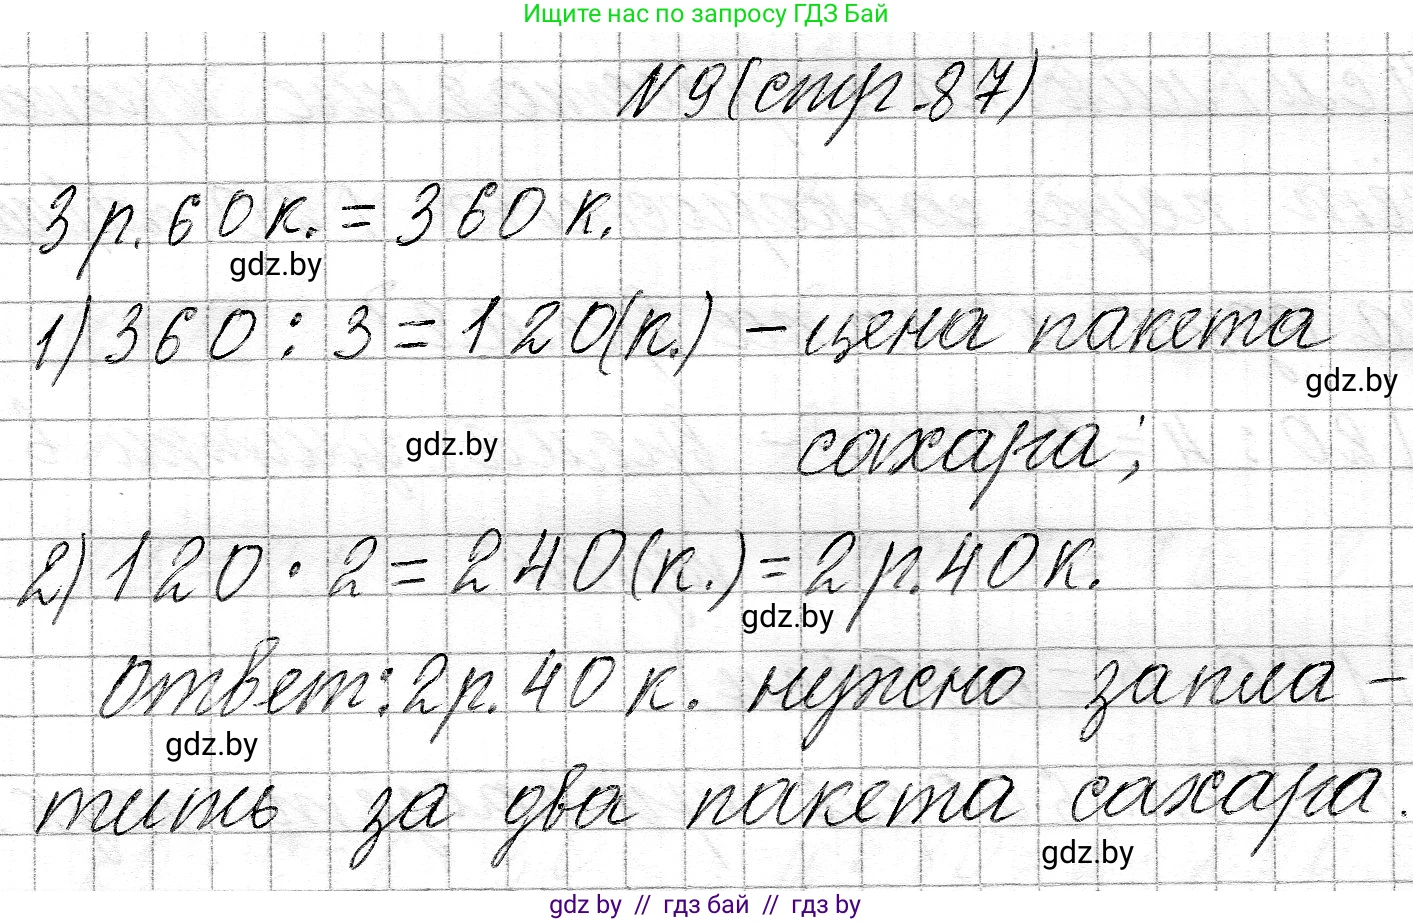 Ищите нас по запросу ГДЗ Бай
N 9 (стр. 87)
3 р. 60 к. = 360 к.
gdz.by
1) 360 : 3 = 120 (к.) – цена пакета
gdz.by
сахара;
gdz.by
2) 120 · 2 = 240 (к.) = 2 р. 40 к.
gdz.by
ответ: 2 р. 40 к. нужно запла -
gdz.by
тить за два пакета сахара.
gdz.by
gdz by // гдз бай // гдз by